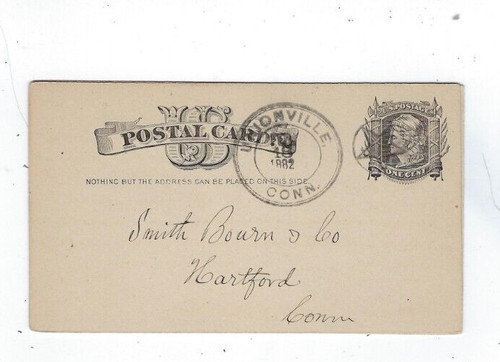 US
POSTAL CARD
UNIONVILLE,
1882
CONN.
U.S. POSTAGE
ONE CENT
NOTHING BUT THE ADDRESS CAN BE PLACED ON THIS SIDE
Smith Bourn & Co
Hartford
Conn